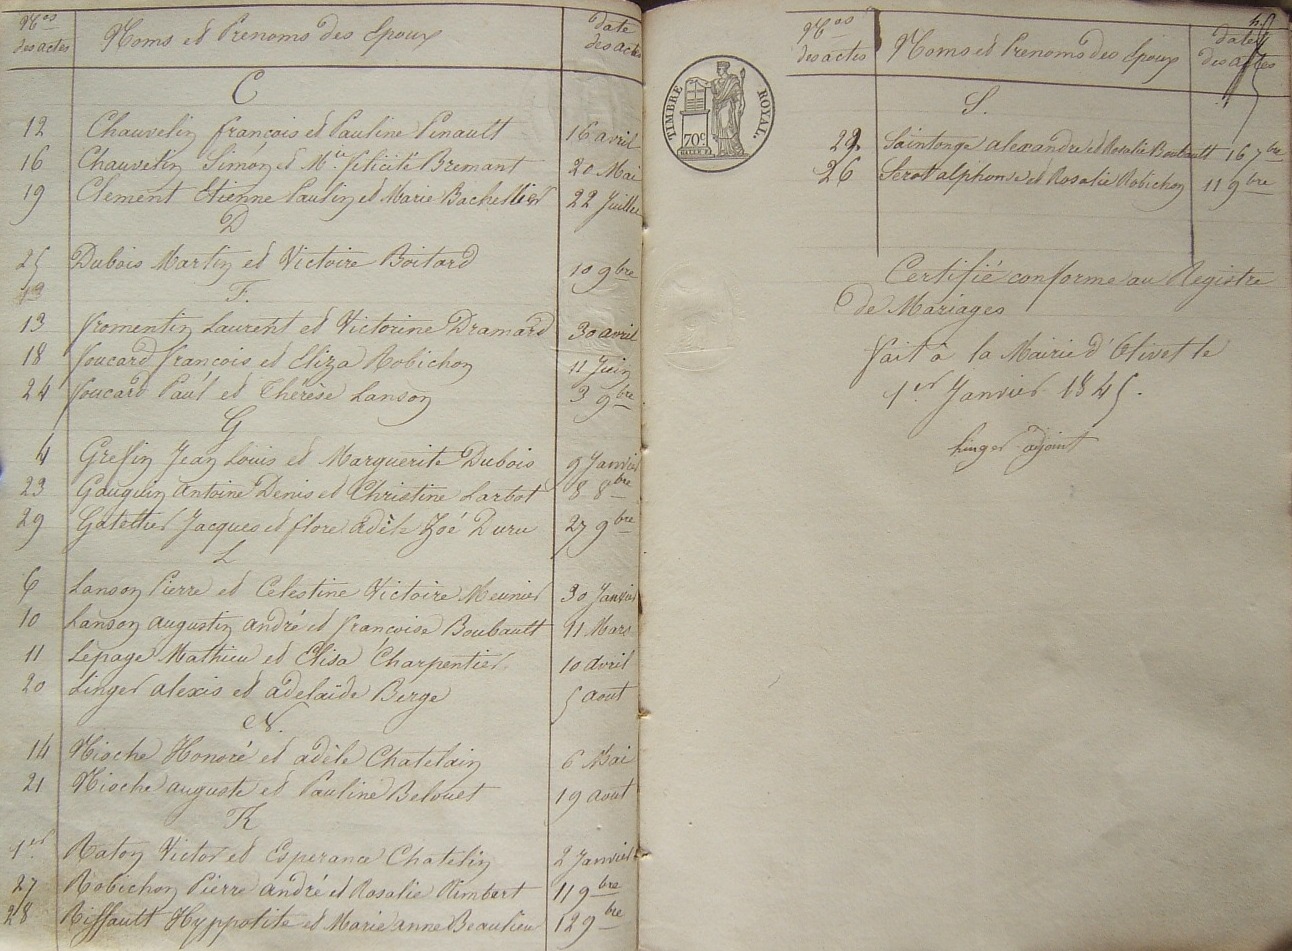 Nos des actes Noms et Prenoms des Epoux date des actes
C
12 Chauvelin francois et Pauline Pinault 16 avril
16 Chauvelin Simon et Mie felicité Bremant 20 Mai
19 Clement Etienne Paulin et Marie Bachellier 22 Juillet
D
25 Dubois Martin et Victoire Boitard 10 9bre
F.
13 fromentin Laurent et Victorine Dramard 30 avril
18 foucard francois et Eliza Robichon 11 Juin
24 foucard Paul et Thérèse Lanson 3 9bre
G
4 Grefin Jean Louis et Marguerite Dubois 9 Janvier
23 Gauguin Antoine Denis et Christine Larbot 8 8bre
29 Jacques et flore adèle Zoé Duru 27 9bre
L
6 Lanson Pierre et Celestine Victoire Meunier 30 Janvier
10 Lanson augustin andré et francoise Boubault 11 Mars
11 Lepage Mathieu et Elisa Charpentier 10 avril
20 Linger alexis et adelaïde Berge 5 aout
N.
14 Nioche Honoré et adèle Chatelain 6 Mai
21 Nioche auguste et Pauline Belouet 19 aout
R
1er Raton Victor et Esperance Chatelin 2 Janvier
27 Robichon Pierre andré et Rosalie Rimbert 11 9bre
28 Riffault Hyppolite et Marie anne Beaulieu 12 9bre
TIMBRE ROYAL.
70c.
Nos des actes Noms et Prenoms des Epoux dates des actes
S.
22 Saintonge alexandre et Rosalie Boubault 16 7bre
26 Serot alphonse et Rosalie Robichon 11 9bre
Certifié conforme au Registre
de Mariages
fait à la Mairie d'Olivet le
1er Janvier 1845.
Linger adjoint